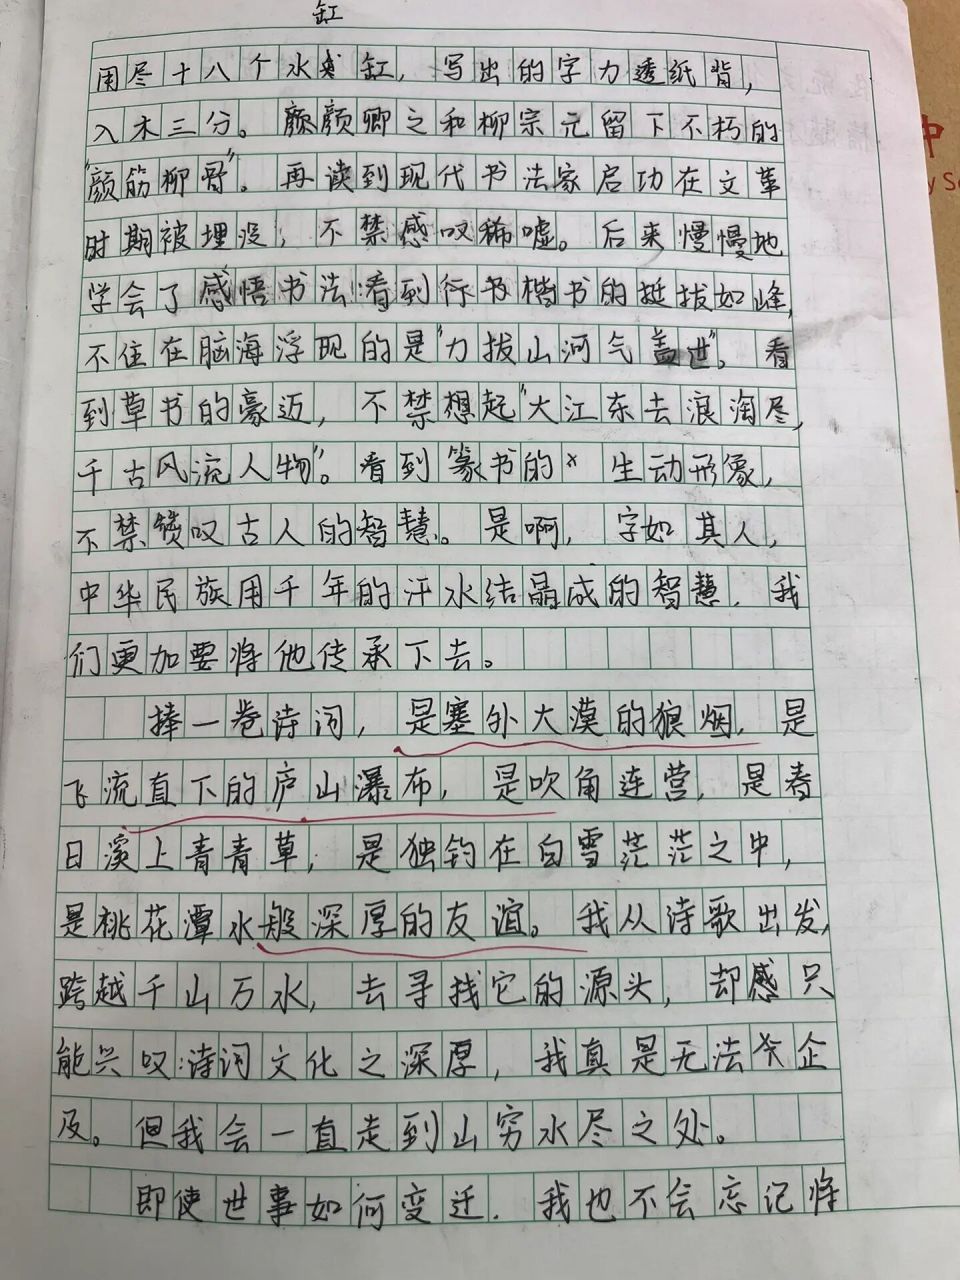 缸
用尽十八个水缸，写出的字力透纸背，
入木三分。颜颜卿之和柳宗元留下不朽的
"颜筋柳骨"。再读到现代书法家启功在文革
时期被埋没，不禁感叹稀嘘。后来慢慢地
学会了感悟书法：看到行书楷书的挺拔如峰，
不住在脑海浮现的是"力拔山河气盖世"。看
到草书的豪迈，不禁想起"大江东去浪淘尽，
千古风流人物"。看到篆书的 生动形象，
不禁赞叹古人的智慧。是啊，字如其人，
中华民族用千年的汗水结晶成的智慧，我
们更加要将他传承下去。
捧一卷诗词，是塞外大漠的狼烟，是
飞流直下的庐山瀑布，是吹角连营，是春
日溪上青青草，是独钓在白雪茫茫之中，
是桃花潭水般深厚的友谊。我从诗歌出发，
跨越千山万水，去寻找它的源头，却感只
能兴叹：诗词文化之深厚，我真是无法企
及。但我会一直走到山穷水尽之处。
即使世事如何变迁，我也不会忘记将
中